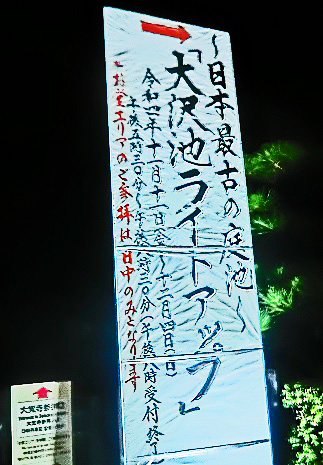 ～日本最古の庭池～
「大沢池ライトアップ」
令和四年十一月十一日(金)～十二月四日(日)
午後五時三〇分～午後八時三〇分(午後八時受付終了)
※お堂エリアのご参拝は日中のみとなります
大覚寺